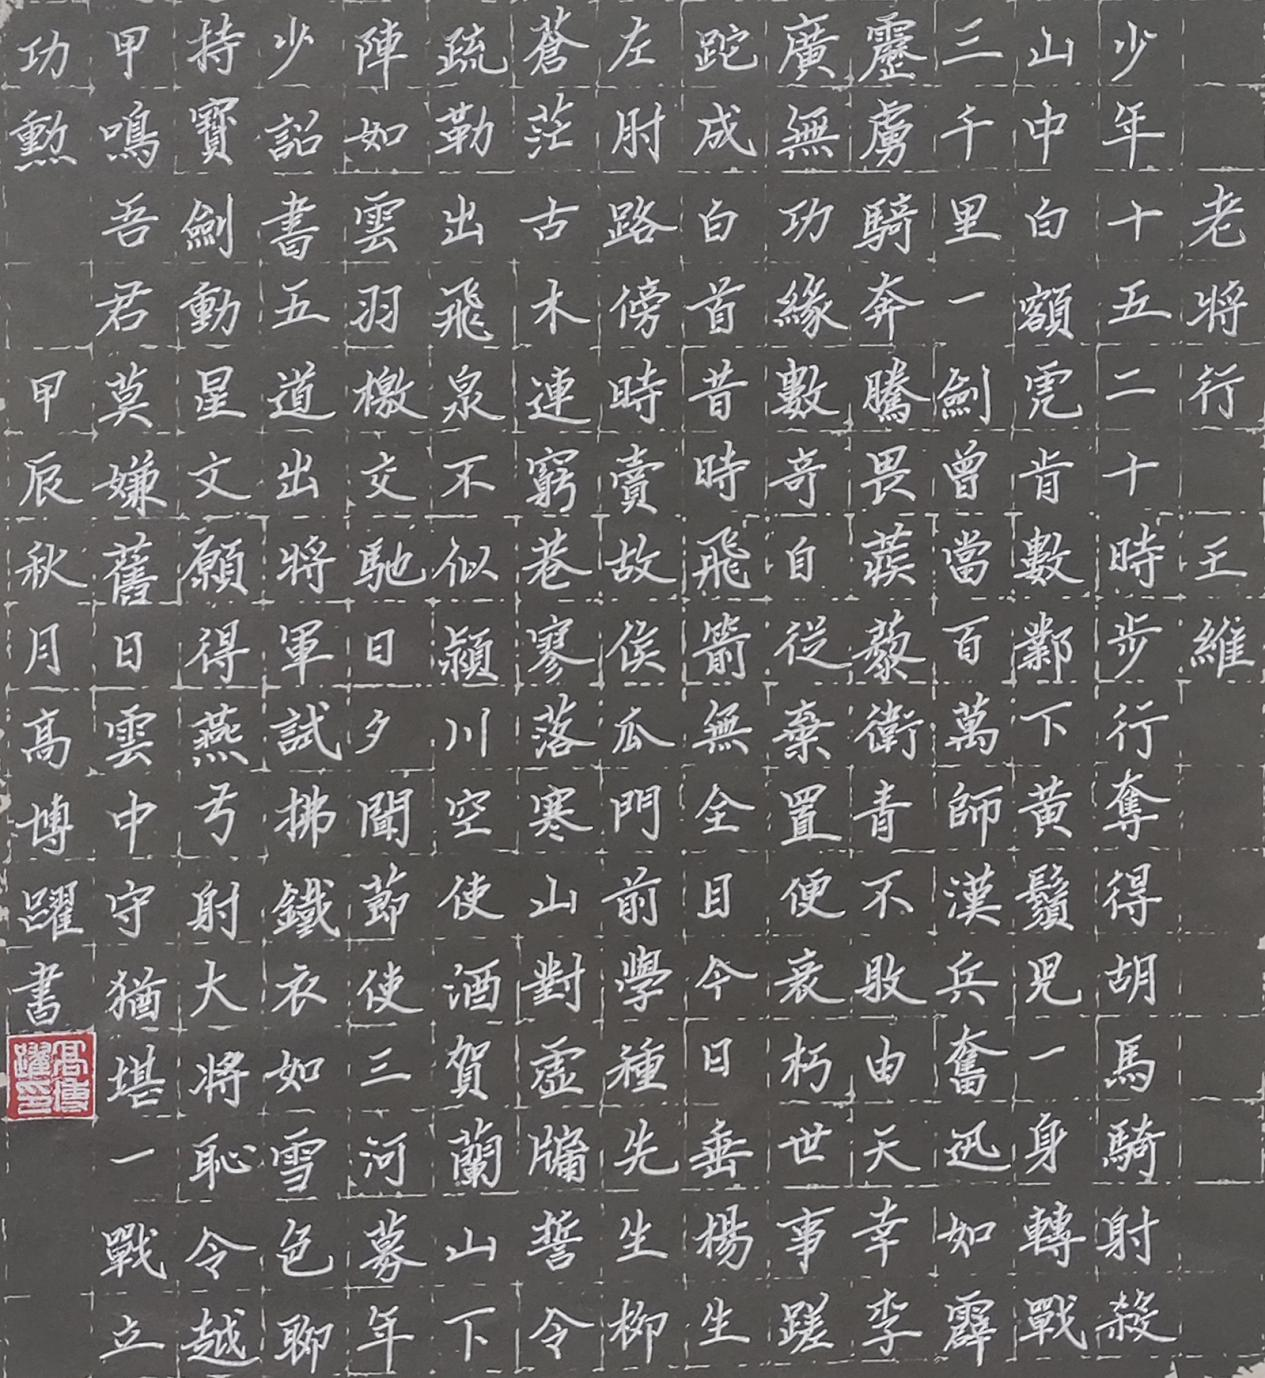 老将行 王維
少年十五二十時步行奪得胡馬騎射殺
山中白額虎肯數鄴下黃鬚児一身轉戰
三千里一劍曾當百萬師漢兵奮迅如霹
靂虜騎奔騰畏蒺藜衛青不敗由天幸李
廣無功緣數奇自從棄置便衰朽世事蹉
跎成白首昔時飛箭無全目今日垂楊生
左肘路傍時賣故侯瓜門前學種先生柳
蒼茫古木連窮巷寥落寒山對虛牖誓令
疏勒出飛泉不似潁川空使酒賀蘭山下
陣如雲羽檄交馳日夕聞節使三河募年
少詔書五道出將軍試拂鐵衣如雪色聊
持寶劍動星文願得燕弓射大將恥令越
甲鳴吾君莫嫌舊日雲中守猶堪一戰立
功勲 甲辰秋月高博躍書
高博躍印